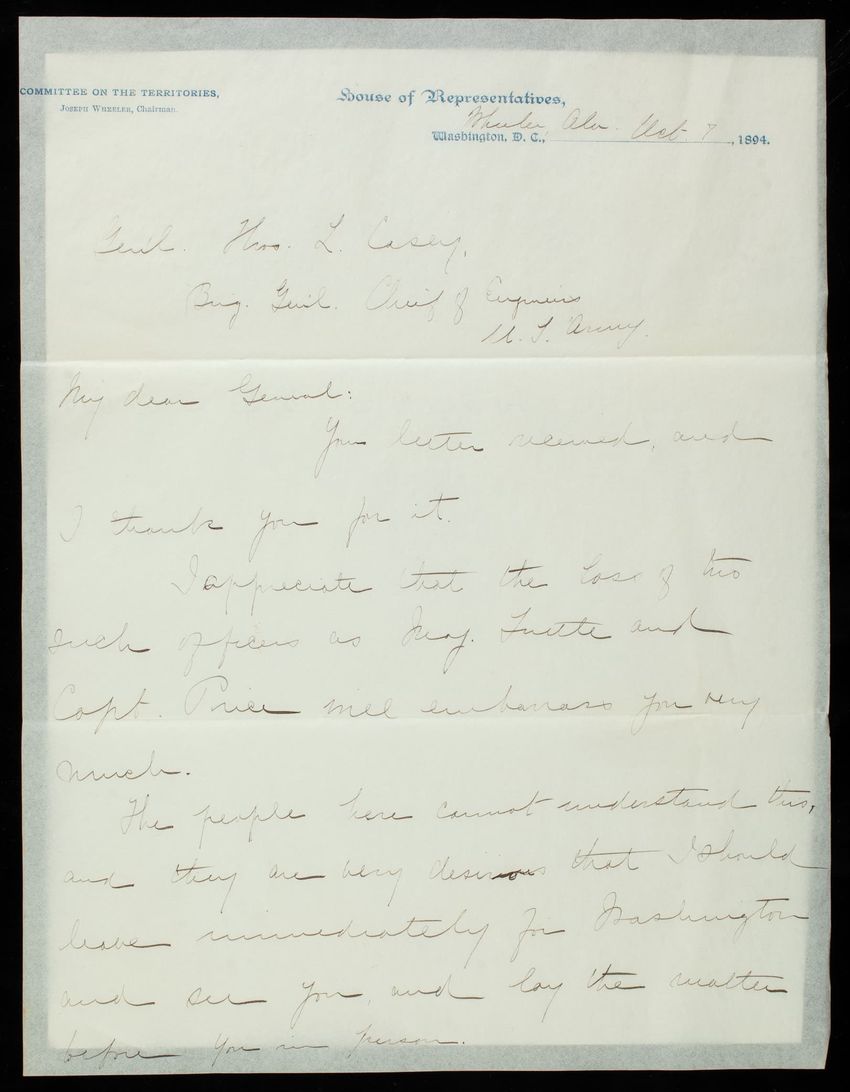 COMMITTEE ON THE TERRITORIES,
JOSEPH WHEELER, Chairman.
House of Representatives,
Washington, D. C., Wheeler, Ala. Oct. 7, 1894.
Genl. Thos. L. Casey,
Brig. Genl. Chief of Engineers
U. S. Army.
My dear General:
Your letter received, and
I thank you for it.
I appreciate that the loss of two
such officers as Maj. and
Capt. Price will embarrass you very
much.
The people here cannot understand this,
and they are very desirous that I should
leave immediately for Washington
and see you, and lay the matter
before you in person.